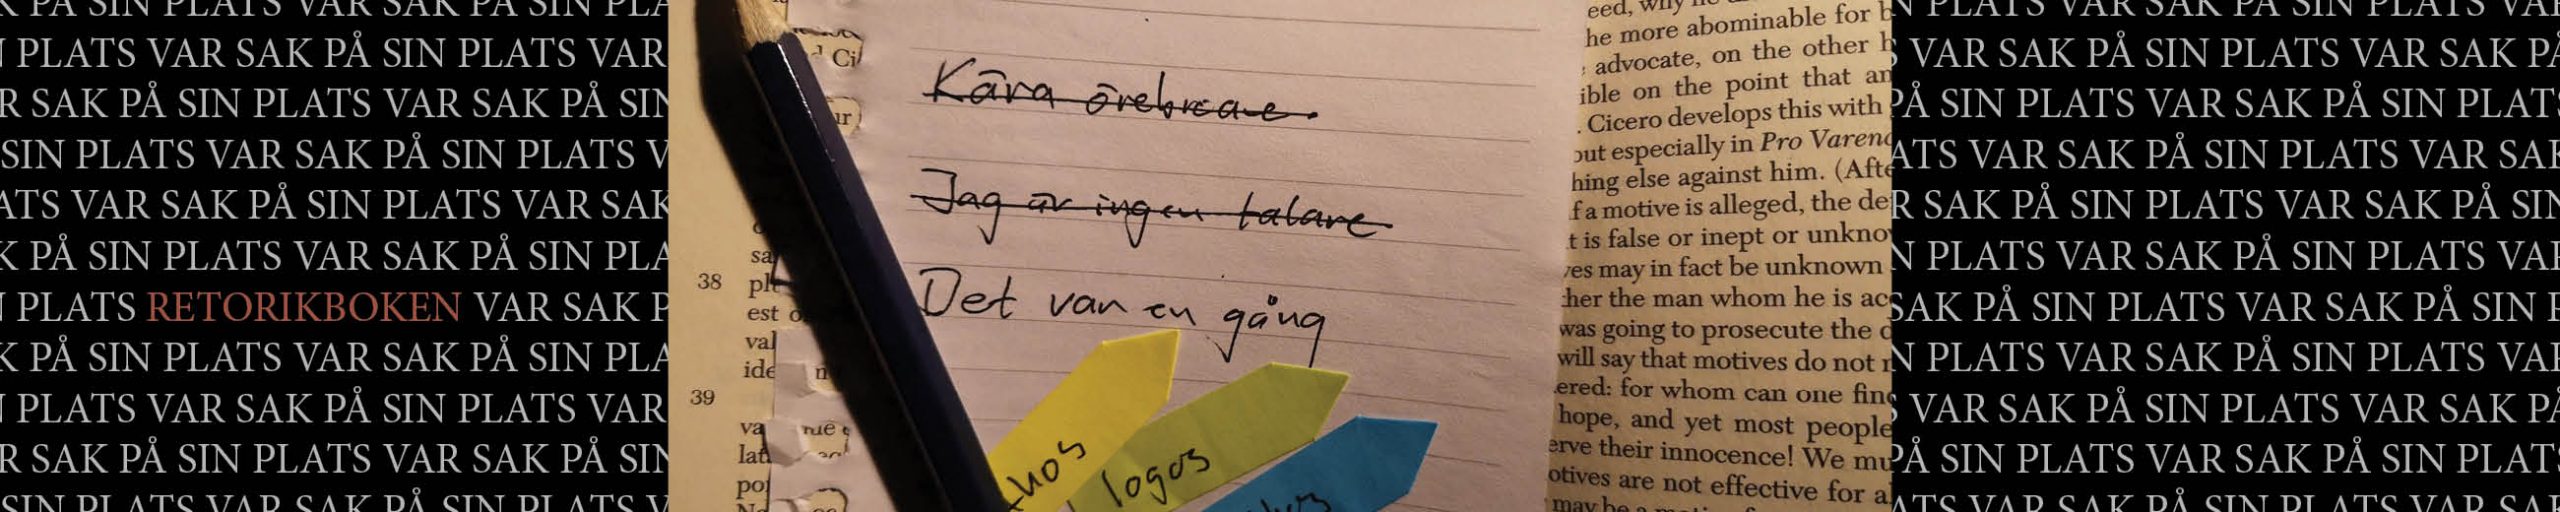 PÅ SIN PLATS VAR SAK PÅ SIN
PLATS VAR SAK PÅ SIN PLATS VAR
SAK PÅ SIN PLATS VAR SAK PÅ
SIN PLATS VAR SAK PÅ SIN PLATS
VAR SAK PÅ SIN PLATS VAR SAK
PÅ SIN PLATS VAR SAK PÅ SIN
PLATS RETORIKBOKEN VAR SAK
PÅ SIN PLATS VAR SAK PÅ SIN
PLATS VAR SAK PÅ SIN PLATS VAR
SAK PÅ SIN PLATS VAR SAK PÅ
SIN PLATS VAR SAK PÅ SIN PLATS
38
est
39
Kära örebroare.
Jag är ingen talare
Det var en gång
logos
he more abominable for
advocate, on the other
ible on the point that
. Cicero develops this with
out especially in Pro
hing else against him. (Afte
f a motive is alleged, the
t is false or inept or
may in fact be unknown
her the man whom he is
was going to prosecute the
will say that motives do not
ered: for whom can one
hope, and yet most people
erve their innocence! We
otives are not effective for
PLATS VAR SAK PÅ SIN PLATS
VAR SAK PÅ SIN PLATS VAR SAK
PÅ SIN PLATS VAR SAK PÅ SIN
VAR SAK PÅ SIN PLATS VAR
SAK PÅ SIN PLATS VAR SAK PÅ
PLATS VAR SAK PÅ SIN PLATS
SAK PÅ SIN PLATS VAR SAK PÅ SIN
PLATS VAR SAK PÅ SIN PLATS
VAR SAK PÅ SIN PLATS VAR SAK
PÅ SIN PLATS VAR SAK PÅ SIN
VAR SAK PÅ SIN PLATS VAR